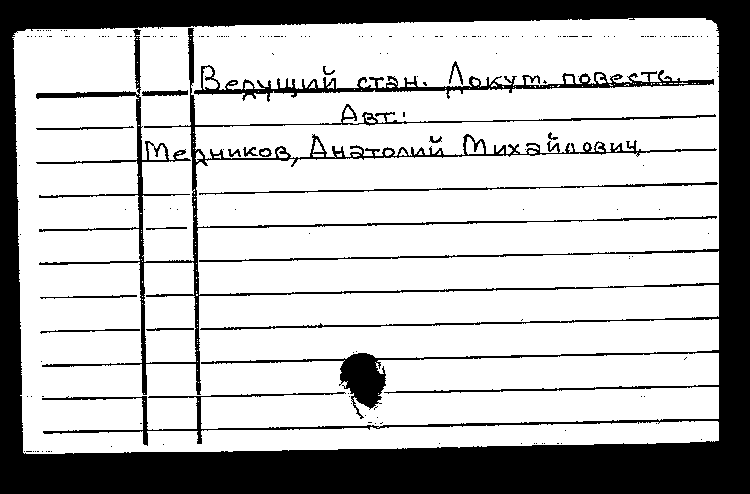 Ведущий стан. Докум. повесть.
Авт.:
Медников, Анатолий Михайлович,